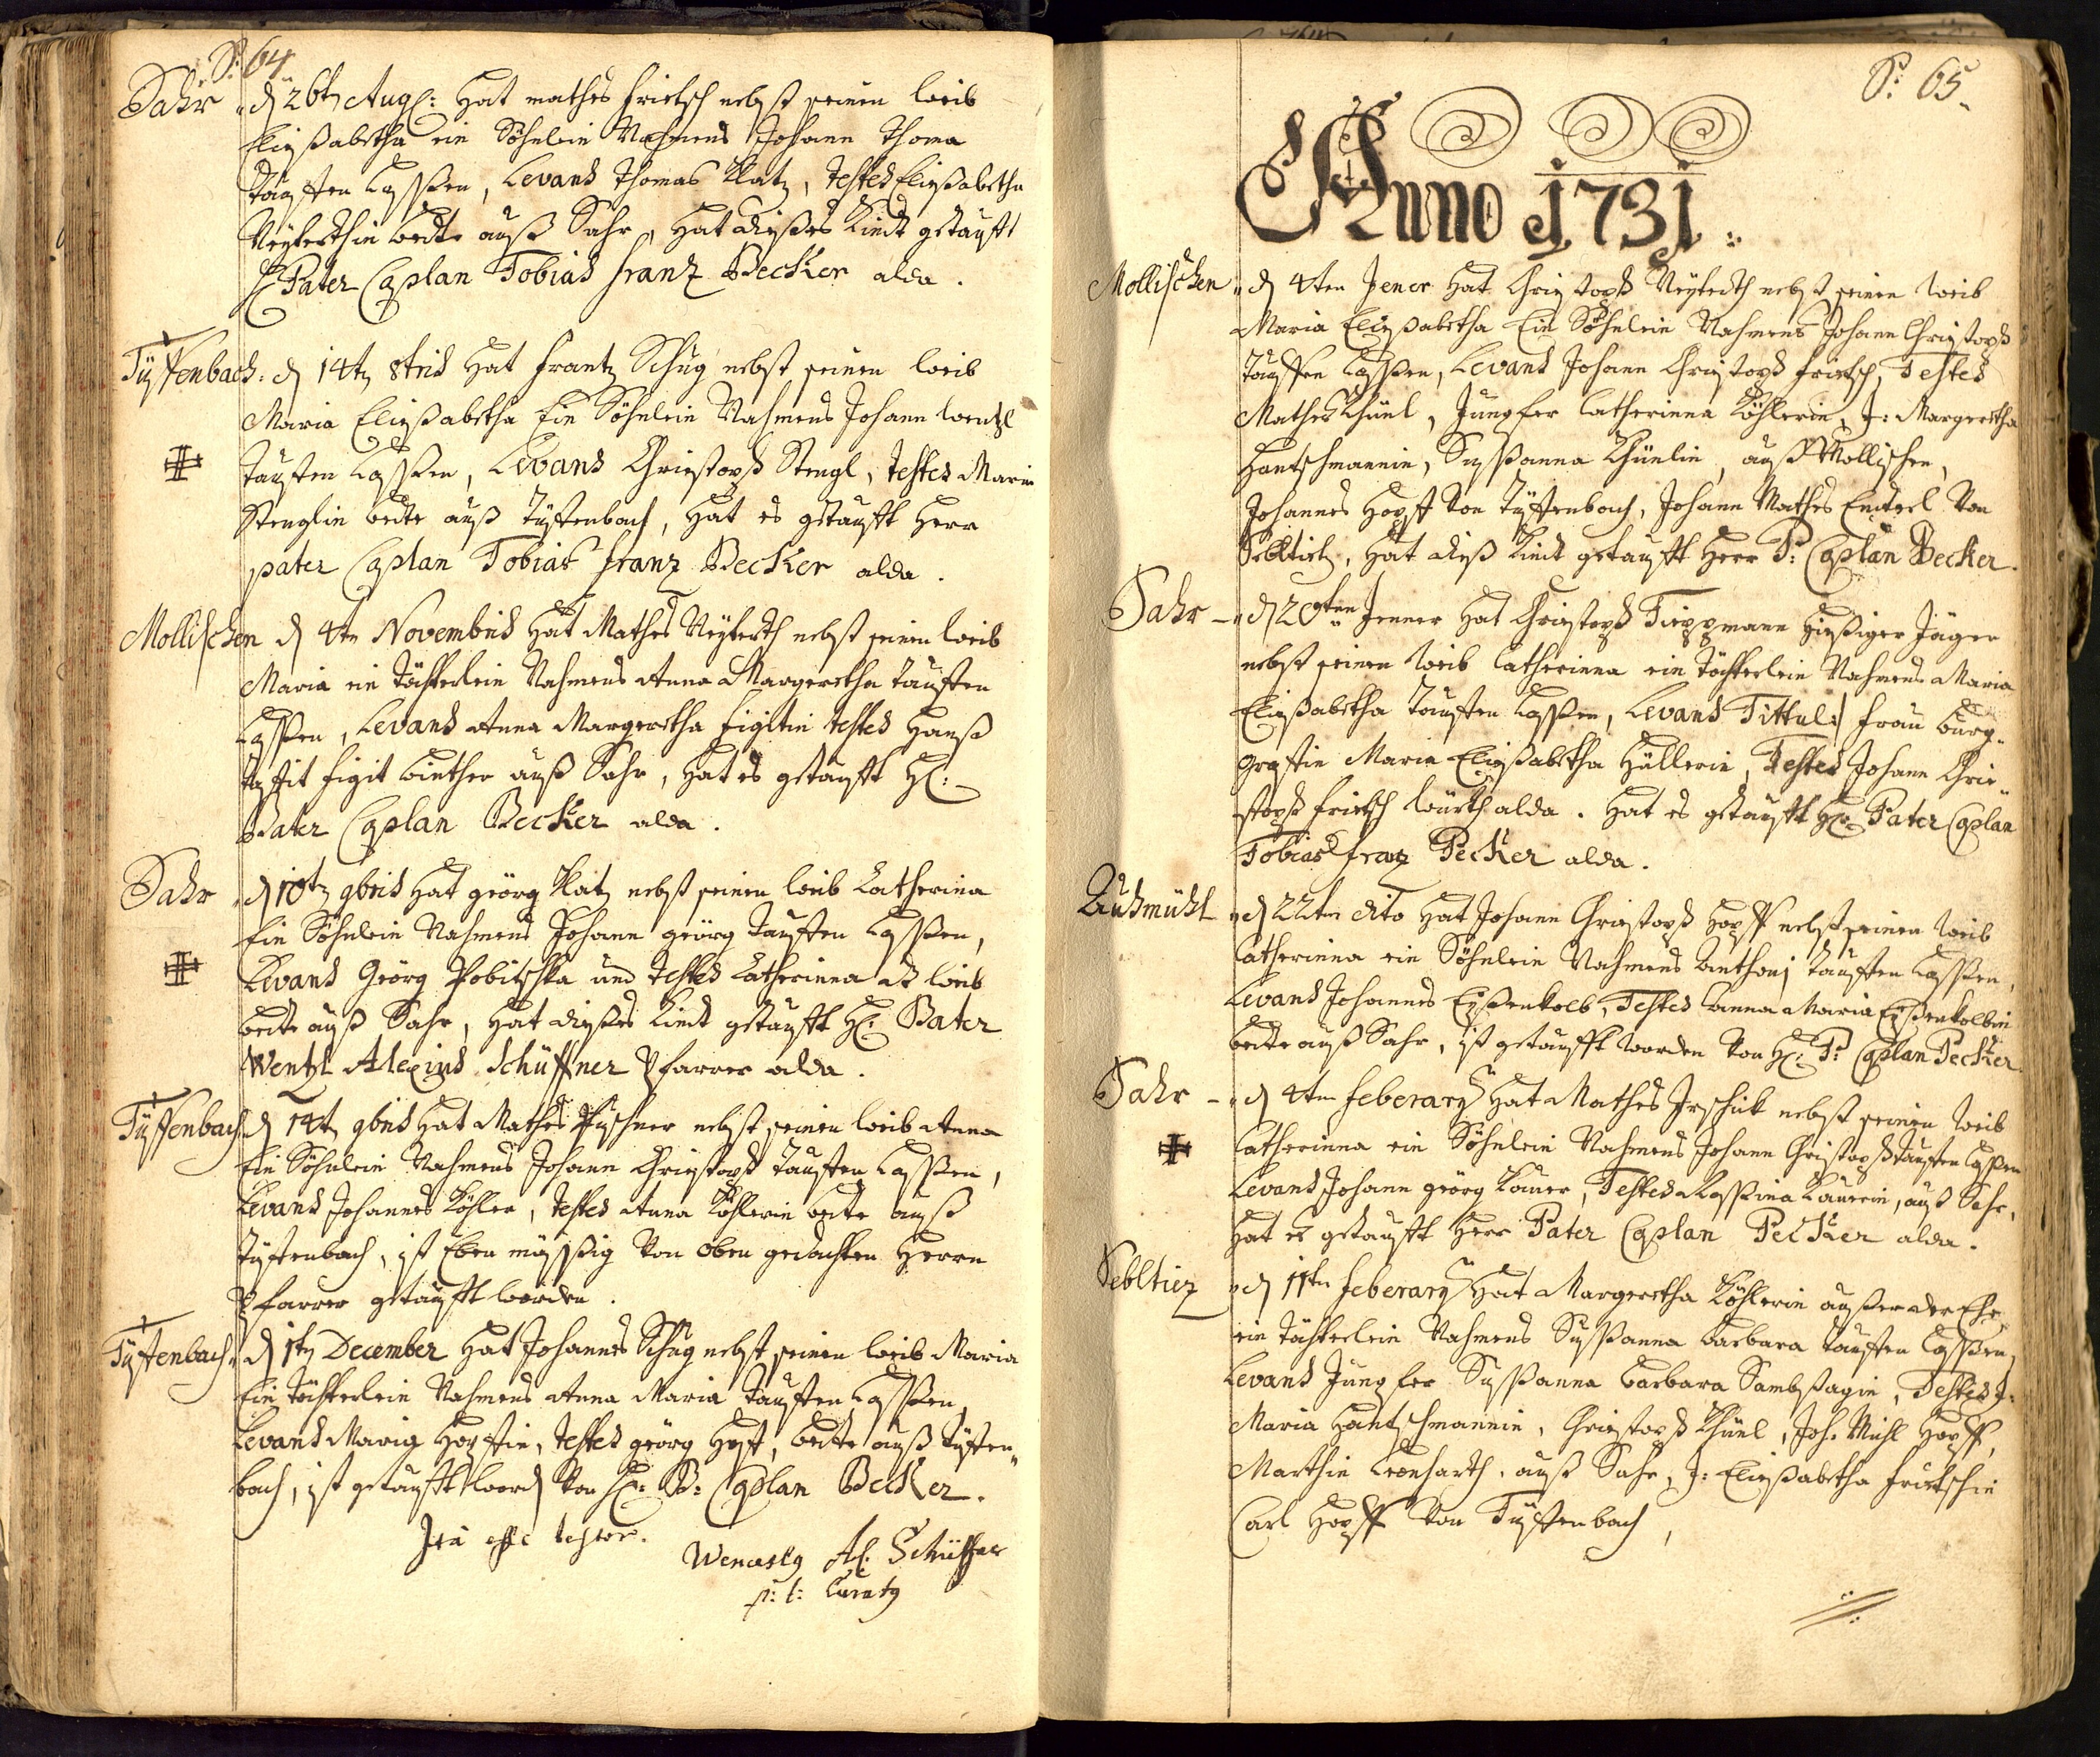 P: 64
Sahr
d 26ten Aug: Hat mathes frietsch nebst seinem weib
Eließabetha ein Söhnlein Nahmens Johann Thoma
tauffen Lasßen, Levans Thomas Klatz, testes Eließabetha
beite auß Sahr, Hat dießes Kindt getaufft
H Pater Caplan Tobias franz Becker alda.
Tüffenbach: d 14ten 8bris Hat frantz Schug nebst seinem weib
Maria Eließabetha Ein Söhnlein Nahmens Johann wentzl
tauffen Lasßen, Levans Christoph Stengl, testes Maria
Stenglin beite auß Tüffenbach, Hat es getaufft Herr
pater Caplan Tobias franz Becker alda.
Mollischen d 4ten Novembris Hat Mathes Neyferth nebst seinem weib
Maria ein töchterlein Nahmens Anna Margeretha tauffen
Lasßen, Levans Anna Margeretha testes Hanß
auß Sahr, Hat es getaufft H:
Pater Caplan Becker alda.
Sahr
d 10ten 9bris Hat geörg Klatz nebst seinem weib Catherina
Ein Söhnlein Nahmens Johann geörg tauffen Lasßen,
Levans Geörg Pobitschka und testes Catherinna weib
beite auß Sahr, Hat dießes Kindt getaufft H: Pater
Wentzl Alexius Schüffner Pfarrer alda.
Tüffenbach d 14ten 9bris Hat Mathes Püschner nebst seinem weib Anna
Ein Söhnlein Nahmens Johann Christoph tauffen Lasßen,
Levans Johannes Köhler, testes Anna Köhlerin beite auß
Tüffenbach, ist Eben mässßig Von oben gedachten Herrn
Pfarrer getaufft worden.
Tüffenbach d 1ten December Hat Johannes Schug nebst seinem weib Maria
Ein töchterlein Nahmens Anna Maria tauffen Lasßen,
Levans Maria Hopffin, testes geörg Hopff, beite auß Tüffen„
bach, ist getaufft word Von H: P: Caplan Becker.
Ita esse testor.
Al: Schüffner
p: t: Curatg
P: 65.
Anno 1731.
Mollischen
d 4ten Jener Hat Christoph Neyferth nebst seinem weib
Maria Eließabetha Ein Söhnlein Nahmens Johann Christoph
tauffen Lasßen, Levans Johann Christoph frietsch, Testes
Mathes Khünl, Jungfer Catherinna Köhlerin, J: Margeretha
Hantschmannin, Susßanna Khünlin, auß Mollischen,
Johannes Hopff Von Tüffenbach, Johann Mathes Von
Sebltietz, Hat dieß Kindt getaufft Herr P: Caplan Becker.
Sahr
d 20ten Jenner Hat Christoph Tieppmann hießiger Jäger
nebst seinem weib Catherinna ein töchterlein Nahmens Maria
Eließabetha tauffen Lasßen, Levans Tittul: frau burg„
gräffin Maria Eließabetha Hüllerin, Testes Johann Chrie„
stoph frietsch würth alda. Hat es getaufft H Pater Caplan
Tobias franz Pecker alda.
d 22ten dito Hat Johann Christoph Hopff nebst seinem weib
Catherinna ein Söhnlein Nahmens Anthonj tauffen Lasßen,
Levans Johannes Eyßenkolb, Testes Anna Maria Eyßenkolbin
beite auß Sahr, ist getaufft worden Von H: P: Caplan Pecker.
Sahr
d 4ten feberary Hat Mathes Irschick nebst seinem weib
Catherinna ein Söhnlein Nahmens Johann Christoph tauffen Lasßen
Levans Johann geörg Kauer, Testes Kauerin, auß Sahr,
Hat es getaufft Herr Pater Caplan Pecker alda.
Sebltiez
d 11ten feberary Hat Margeretha Köhlerin außer der Ehe
ein töchterlein Nahmens Susßanna barbara tauffen Lasßen,
Levans Jungfer Susßanna barbara Testes J:
Maria Hantschmannin, Christoph Khünl, Joh: Michl Hopff,
Marthin Leonharth, auß Sahr, J: Eließabetha frietschin
Carl Hopff Von Tüffenbach,